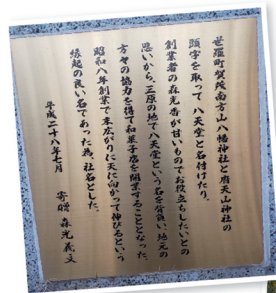 世羅町賀茂南方山八幡神社と府天山神社の
頭字を取って八天堂と名付けたり。
創業者の森光香が甘いものでお役立ちしたいとの
思いから、三原の地で八天堂という名を背負い地元の
方々の協力を得て和菓子店を開業することとなった。
昭和八年創業で末広がりに天に向かって伸びるという
縁起の良い名であった為、社名とした。
平成二十八年七月
寄贈 森光義文